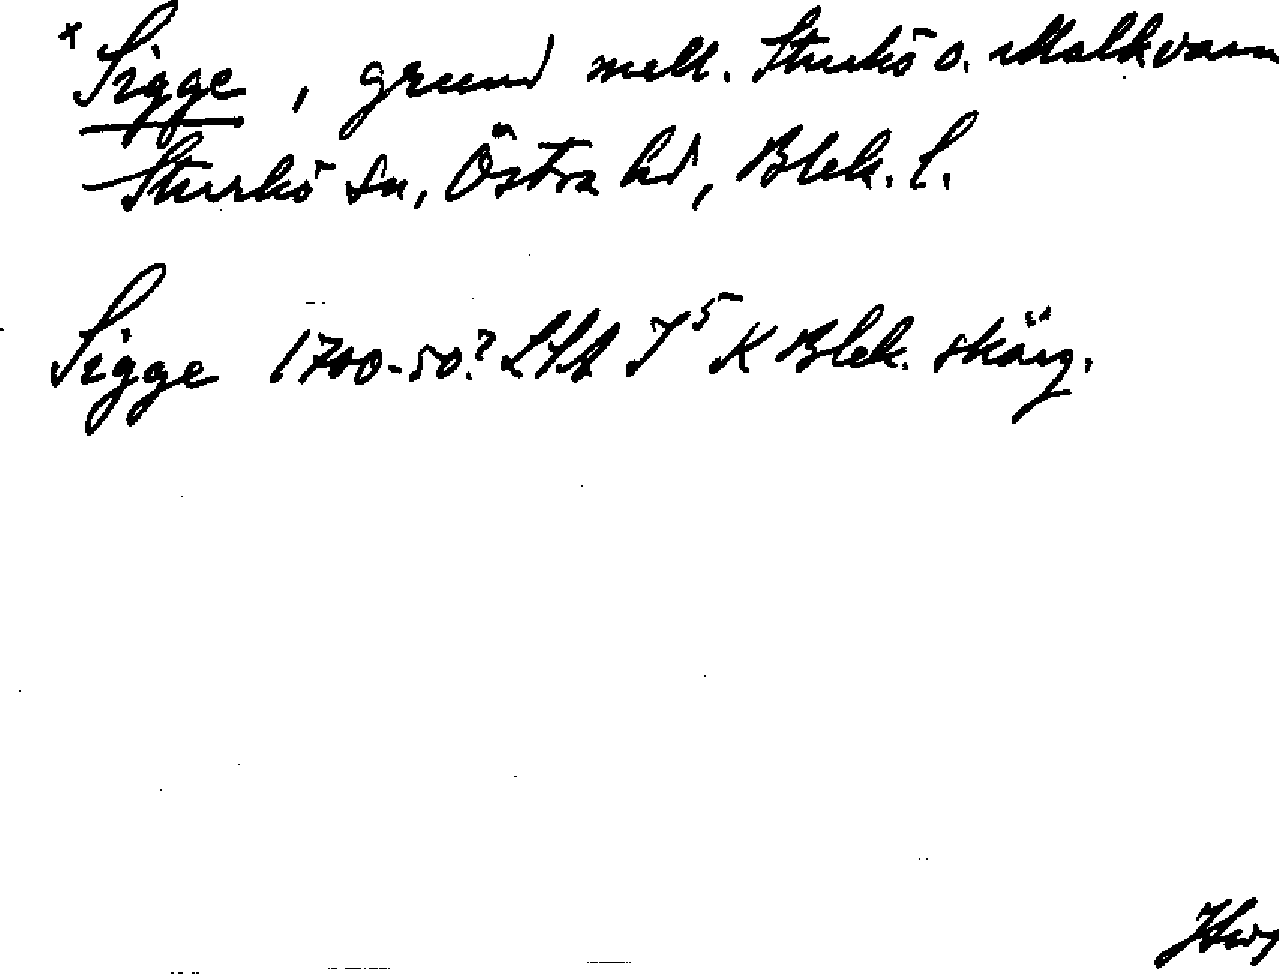 × Sigge, grund mell. Sturkö o. Malkvarn
Sturkö sn, Östra hd, Blek. l.
Sigge 1700-50? LSA I⁵ K Blek. skärg.